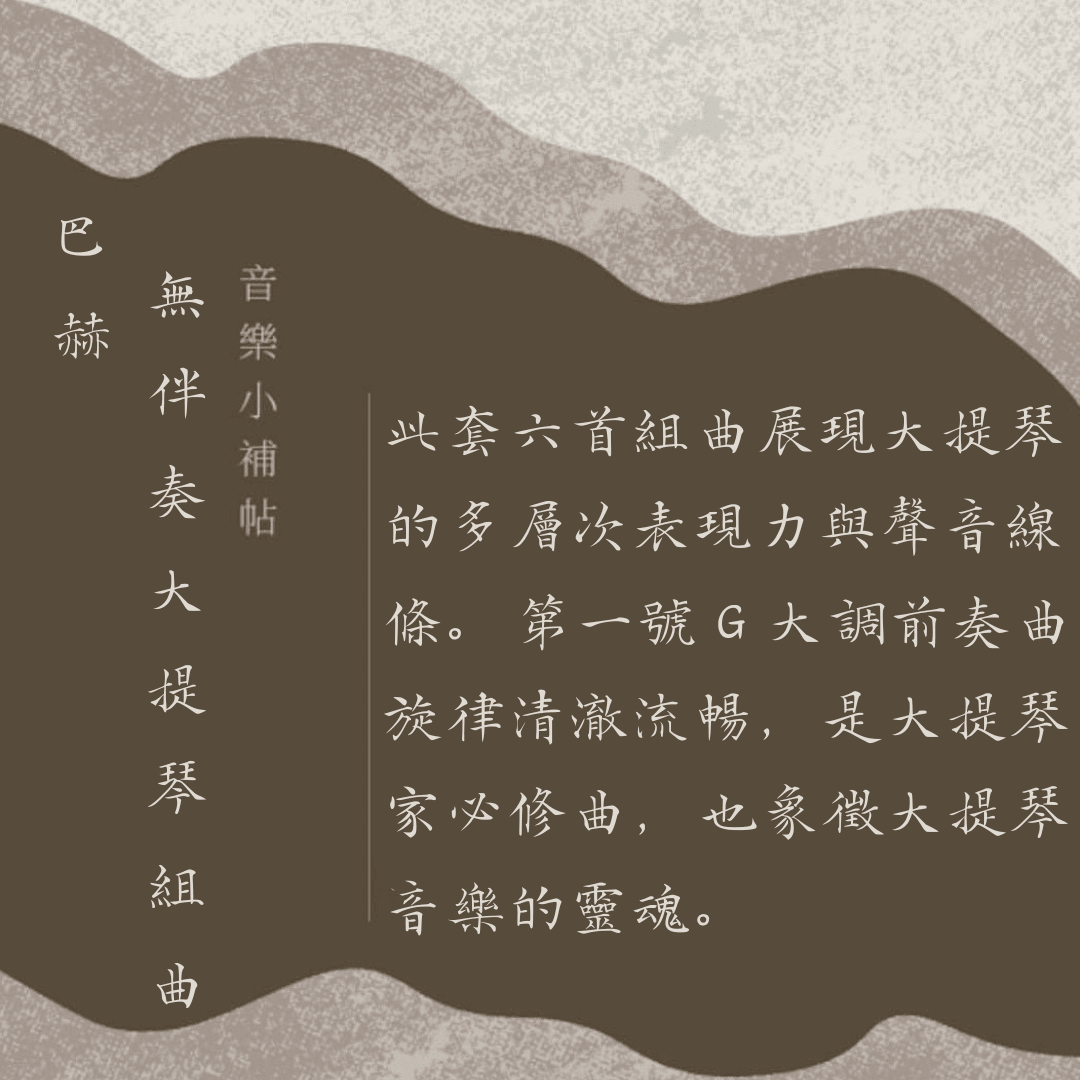 巴赫
無伴奏大提琴組曲
音樂小補帖
此套六首組曲展現大提琴
的多層次表現力與聲音線
條。 第一號 G 大調前奏曲
旋律清澈流暢， 是大提琴
家必修曲， 也象徵大提琴
音樂的靈魂。